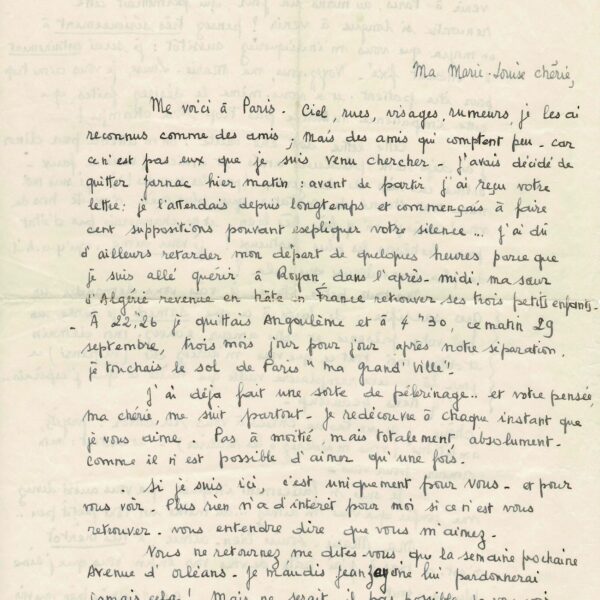 Ma Marie-Louise chérie,
Me voici à Paris. Ciel, rues, visages, rumeurs, je les ai
reconnus comme des amis ; Mais des amis qui comptent peu - car
ce n'est pas eux que je suis venu chercher - J'avais décidé de
quitter Jarnac hier matin : avant de partir j'ai reçu votre
lettre : je l'attendais depuis longtemps et commençais à faire
cent suppositions pouvant expliquer votre silence ... J'ai dû
d'ailleurs retarder mon départ de quelques heures parce que
je suis allé quérir à Royan dans l'après-midi, ma sœur
d'Algérie revenue en hâte en France retrouver ses trois petits enfants -
- À 22,26 je quittais Angoulême et à 4h30, ce matin 29
septembre, trois mois jour pour jour après notre séparation,
je touchais le sol de Paris "ma grand' ville".
J'ai déjà fait une sorte de pélerinage... et votre pensée,
ma chérie, me suit partout. Je redécouvre à chaque instant que
je vous aime. Pas à moitié, mais totalement, absolument.
comme il n'est possible d'aimer qu'une fois.
Si je suis ici, c'est uniquement pour vous - et pour
vous voir. Plus rien n'a d'intérêt pour moi si ce n'est vous
retrouver - vous entendre dire que vous m'aimez -
Vous ne retournez me dites-vous que la semaine prochaine
Avenue d'Orléans. Je maudis Jean
lui pardonnerai
jamais cela ! Mais ne serait-il pas possible